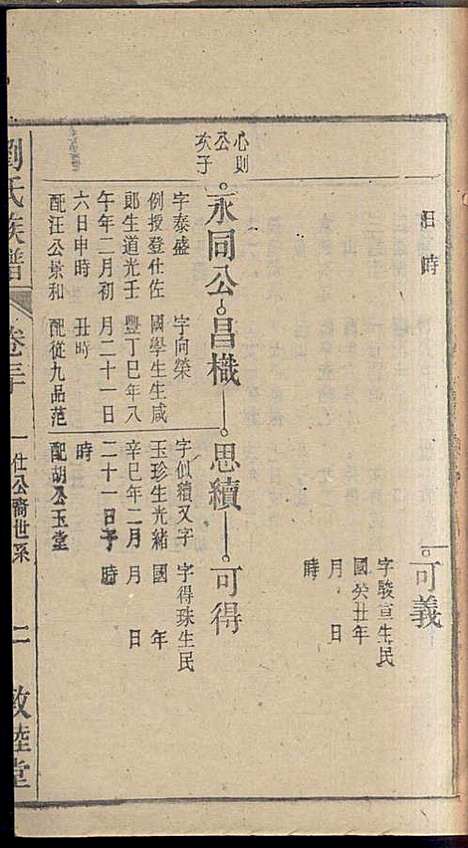 日時
可義
字駿宣生民
國癸丑年
月日
時
心則
公
次子
永同公
昌櫼
思續
可得
字泰盛
例授登仕佐
郎生道光壬
午年二月初
六日申時
配汪公景和
字向榮
國學生生咸
豐丁巳年八
月二十一日
丑時
配從九品范
字似續又字
玉珍生光緒
辛巳年二月
二十一日子時
時
配胡公玉堂
字得珠生民
國年
月日
時
劉氏族譜
卷三十
一仕公裔世系
二
敦睦堂